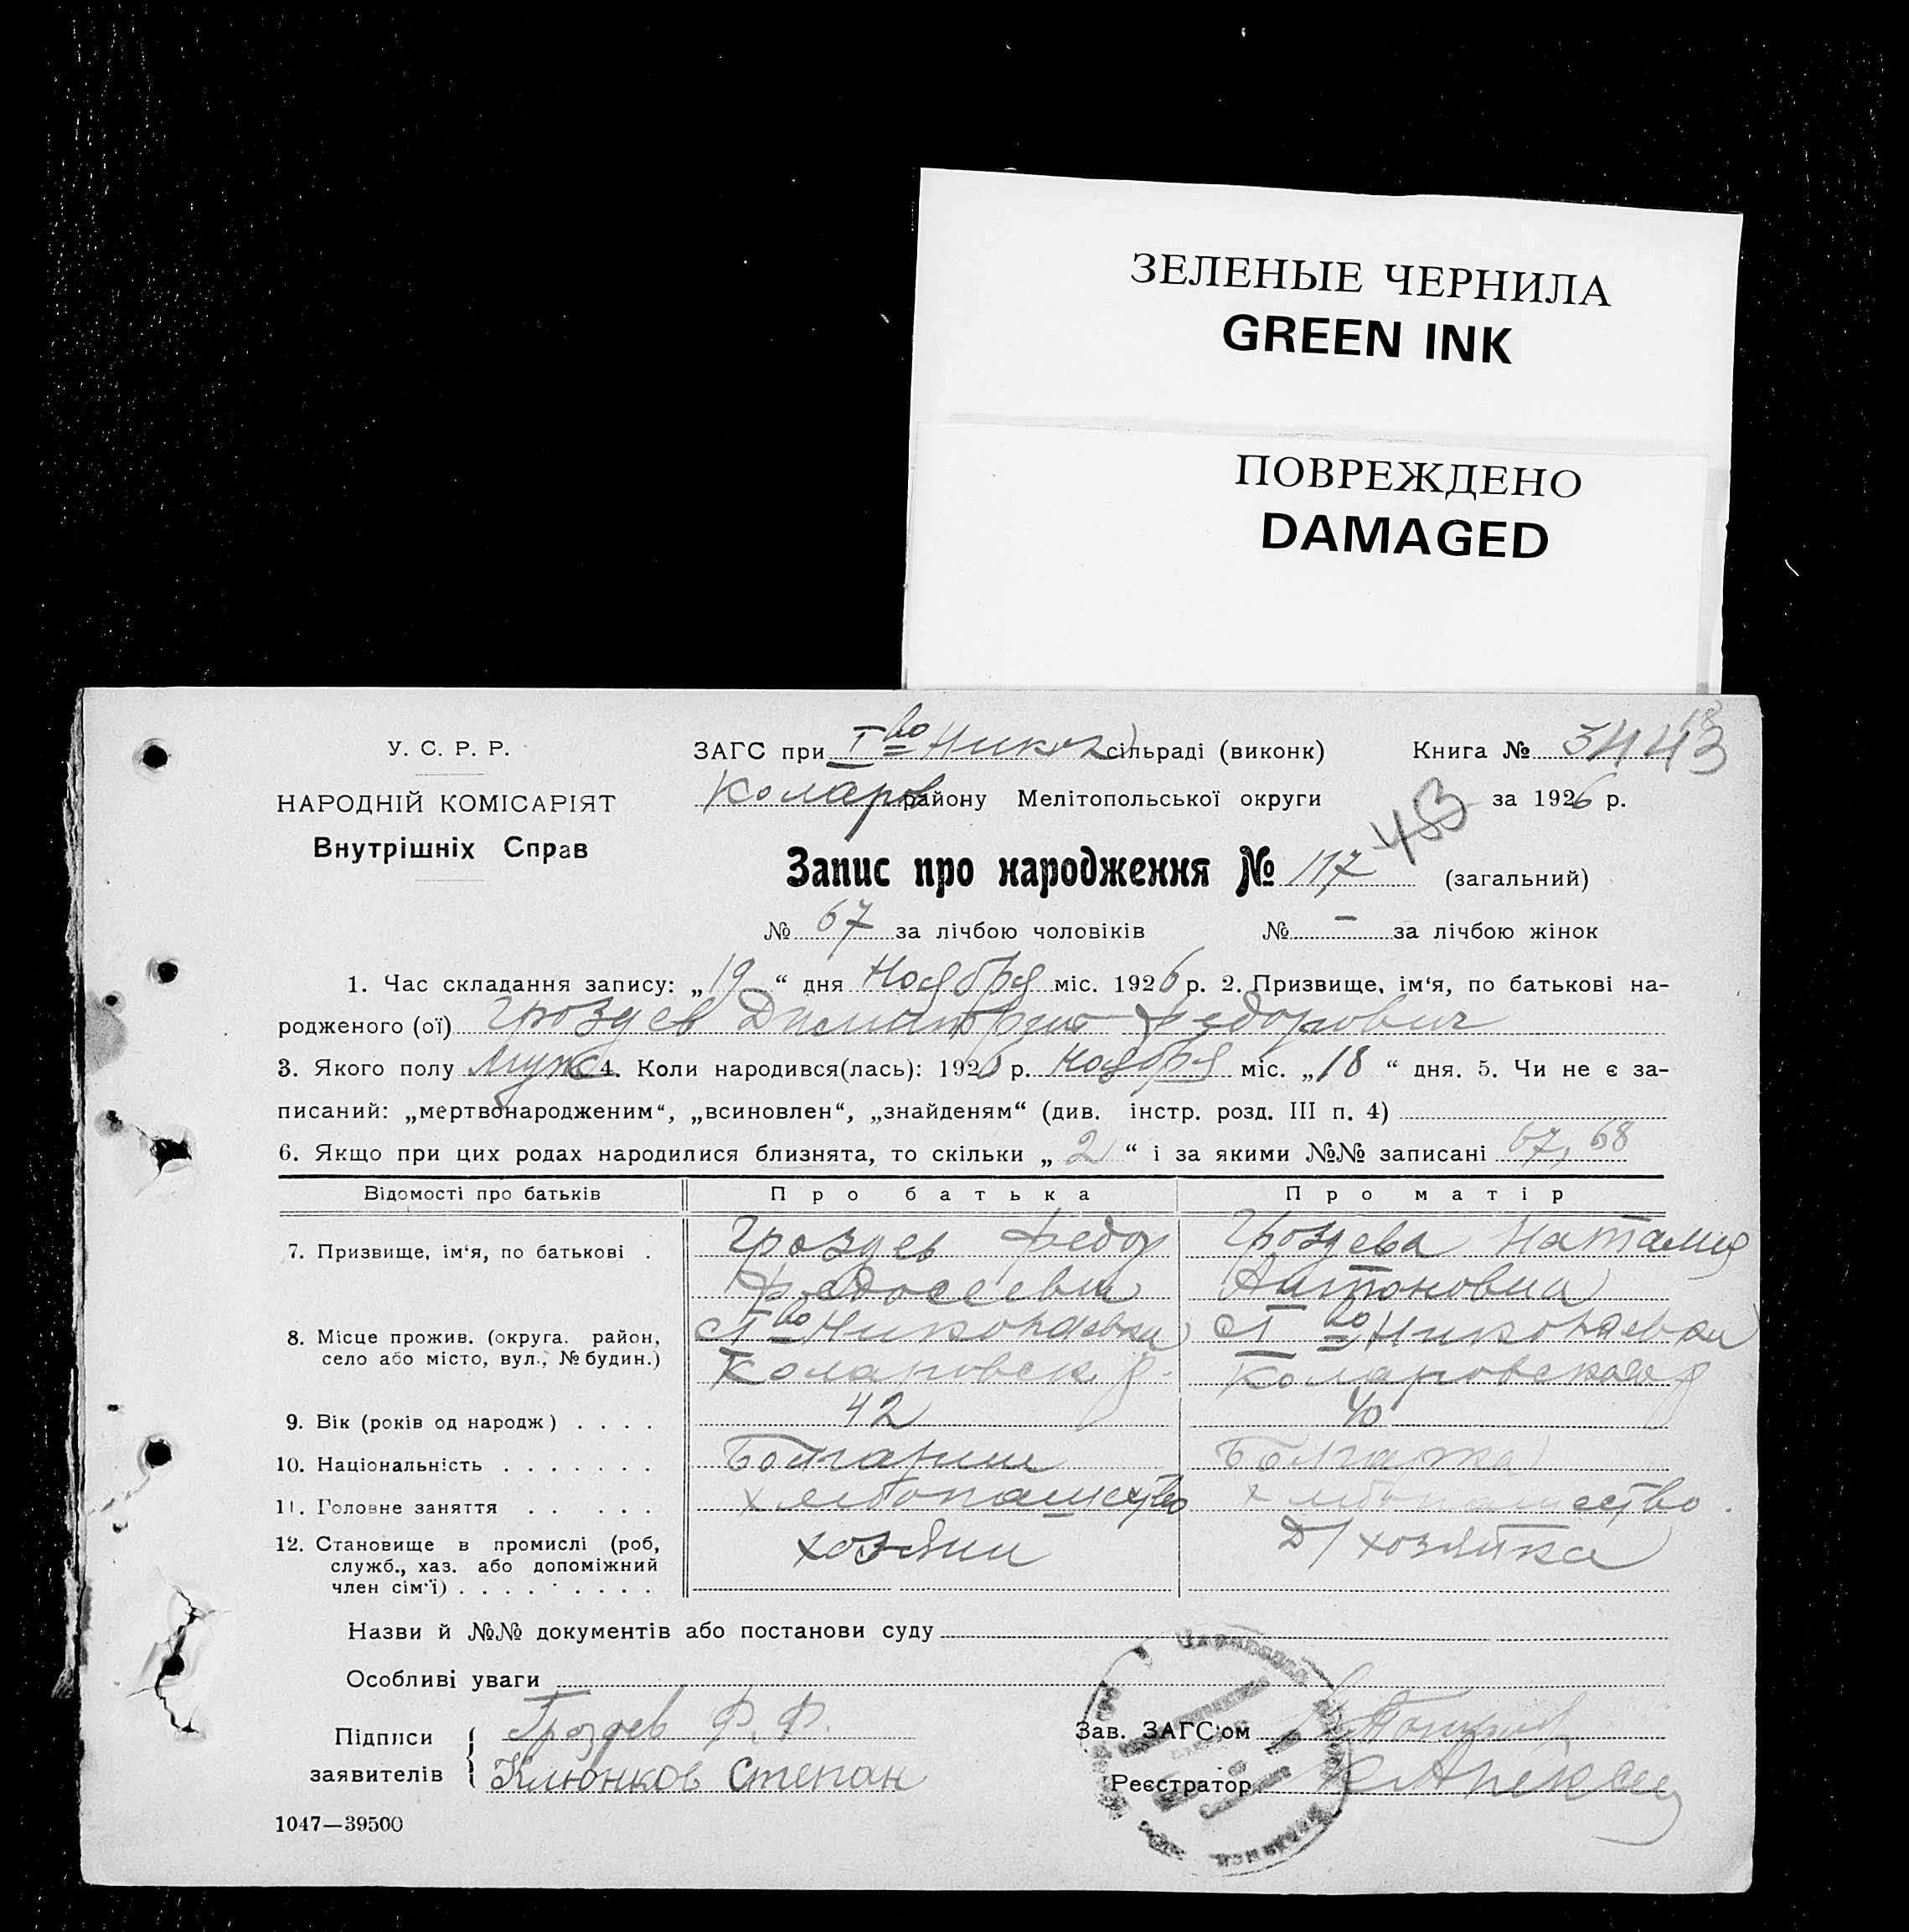 ЗЕЛЕНЫЕ ЧЕРНИЛА
GREEN INK
ПОВРЕЖДЕНО
DAMAGED
У. С. Р. Р.
НАРОДНІЙ КОМІСАРІЯТ
Внутрішніх Справ
ЗАГС при І во Никол сільраді (виконк) Книга №
Коларов району Мелітопольської округи за 1926 р.
Запис про народження № 117 (загальний)
№ 67 за лічбою чоловіків № – за лічбою жінок
1. Час складання запису: „19“ дня Ноября міс. 1926 р. 2. Призвище, ім‘я, по батькові на-
родженого (ої) Гроздев Димитрий Федорович
3. Якого полу муж 4. Коли народився(лась): 1926 р. Ноября міс. „18“ дня. 5. Чи не є за-
писаний: „мертвонародженим“, „всиновлен“, „знайденям“ (див. інстр. розд. III п. 4)
6. Якщо при цих родах народилися близнята, то скільки „2“ і за якими №№ записані 67, 68
Відомості про батьків Про батька Про матір
7. Призвище, ім‘я, по батькові . Гроздев Федор Гроздева Наталия
Федосеевич Антоновна
8. Місце прожив. (округа. район, с І во Николаевки с І во Николаевки
село або місто, вул., № будин.) Коларовск р. Коларовского р
9. Вік (років од народж) . . . . 42 40
10. Національність . . . . . . . Болгарин Болгарка
11. Головне заняття . . . . . хлебопашество хлебопашество
12. Становище в промислі (роб, хозяин Д/хозяйка
служб., хаз. або допоміжний
член сім‘ї) . . . . . . . . .
Назви й №№ документів або постанови суду
Особливі уваги
Підписи Гроздев Ф. Ф. Зав. ЗАГС‘ом
заявителів Клюнков Степан Реєстратор
1047—39500